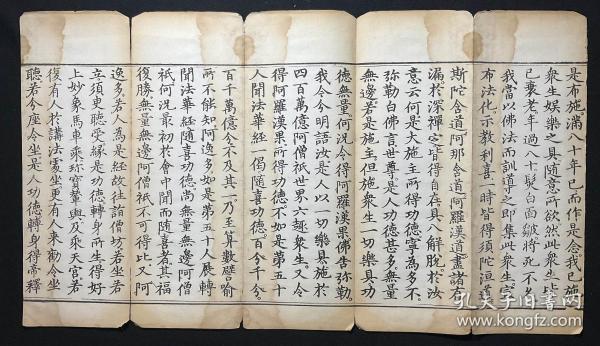 是布施滿八十年已而作是念我已施
衆生娛樂之具隨意所欲然此衆生皆
已衰老年過八十髮白面皺將死不久
我當以佛法而訓導之即集此衆生宣
布法化示教利喜一時皆得須陀洹道
斯陀含道阿那含道阿羅漢道盡諸有
漏於深禪定皆得自在具八解脫於汝
意云何是大施主所得功德寧為多不
彌勒白佛言世尊是人功德甚多無量
無邊若是施主但施衆生一切樂具功
德無量何況令得阿羅漢果佛告彌勒
我今分明語汝是人以一切樂具施於
四百萬億阿僧祇世界六趣衆生又令
得阿羅漢果所得功德不如是第五十
人聞法華經一偈隨喜功德百分千分
百千萬億分不及其一乃至算數譬喻
所不能知阿逸多如是第五十人展轉
聞法華經隨喜功德尚無量無邊阿僧
祇何況最初於會中聞而隨喜者其福
復勝無量無邊阿僧祇不可得比又阿
逸多若人為是經故往詣僧坊若坐若
立須臾聽受緣是功德轉身所生得好
上妙象馬車乘珍寶輦輿及乘天宮若
復有人於講法處坐更有人來勸令坐
聽若分座令坐是人功德轉身得帝釋
孔夫子旧书网
www.kongfz.com